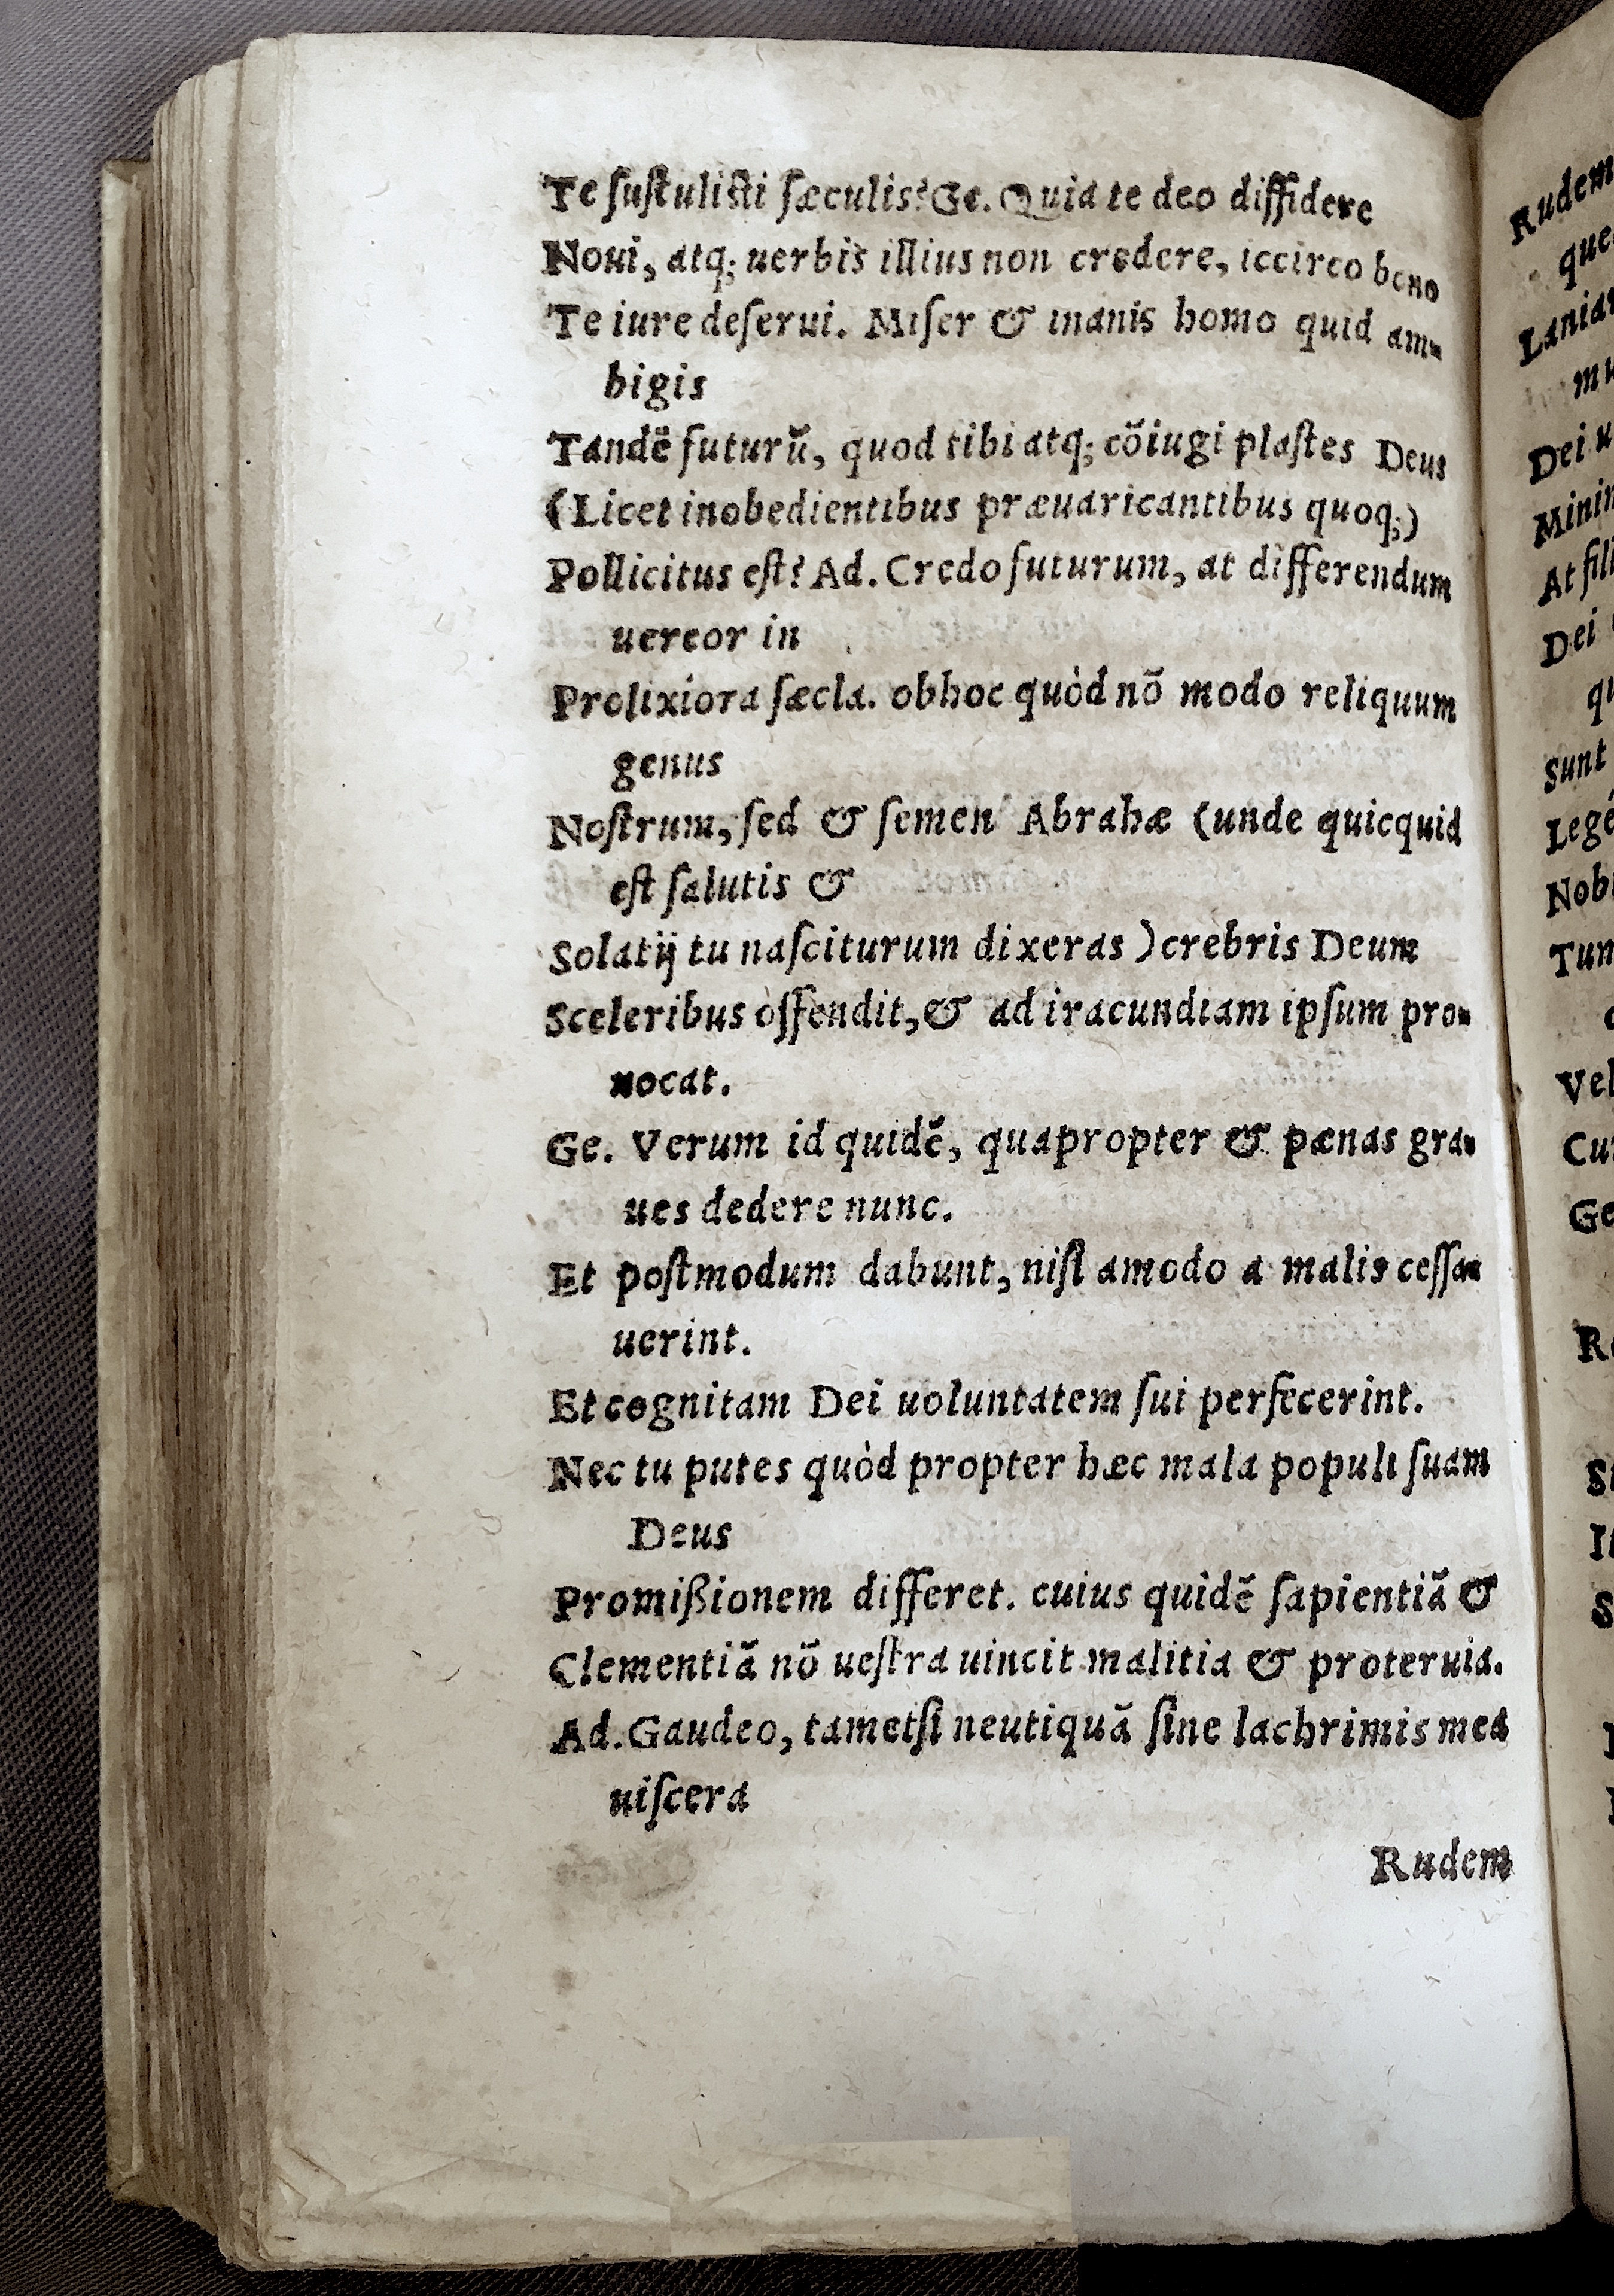 Te ſuſtuliſti ſæculis? Ge. Quia te deo diffidere
Noui, atq; uerbis illius non credere, iccirco bono
Te iure deſerui. Miſer & inanis homo quid am-
bigis
Tandẽ futurũ, quod tibi atq; cõiugi plaſtes Deus
(Licet inobedientibus præuaricantibus quoq;)
Pollicitus eſt? Ad. Credo futurum, at differendum
uereor in
Prolixiora ſæcla. ob hoc quòd nõ modo reliquum
genus
Noſtrum, ſed & ſemen Abrahæ (unde quicquid
eſt ſalutis &
Solatij tu naſciturum dixeras) crebris Deum
Sceleribus offendit, & ad iracundiam ipſum pro-
uocat.
Ge. Verum id quidẽ, quapropter & pænas gra-
ues dedere nunc.
Et poſtmodum dabunt, niſi amodo a malis ceſſa-
uerint.
Et cognitam Dei uoluntatem ſui perfecerint.
Nec tu putes quòd propter hæc mala populi ſuam
Deus
Promißionem differet. cuius quidẽ ſapientiã &
Clementiã nõ ueſtra uincit malitia & proteruia.
Ad. Gaudeo, tametſi neutiquã ſine lachrimis mea
uiſcera
Rudem
Rudem
que
Lania
mu
Dei u
Minin
At fili
Dei
qu
Sunt
Legẽ
Nob
Tun
Vel
Cu
Ge